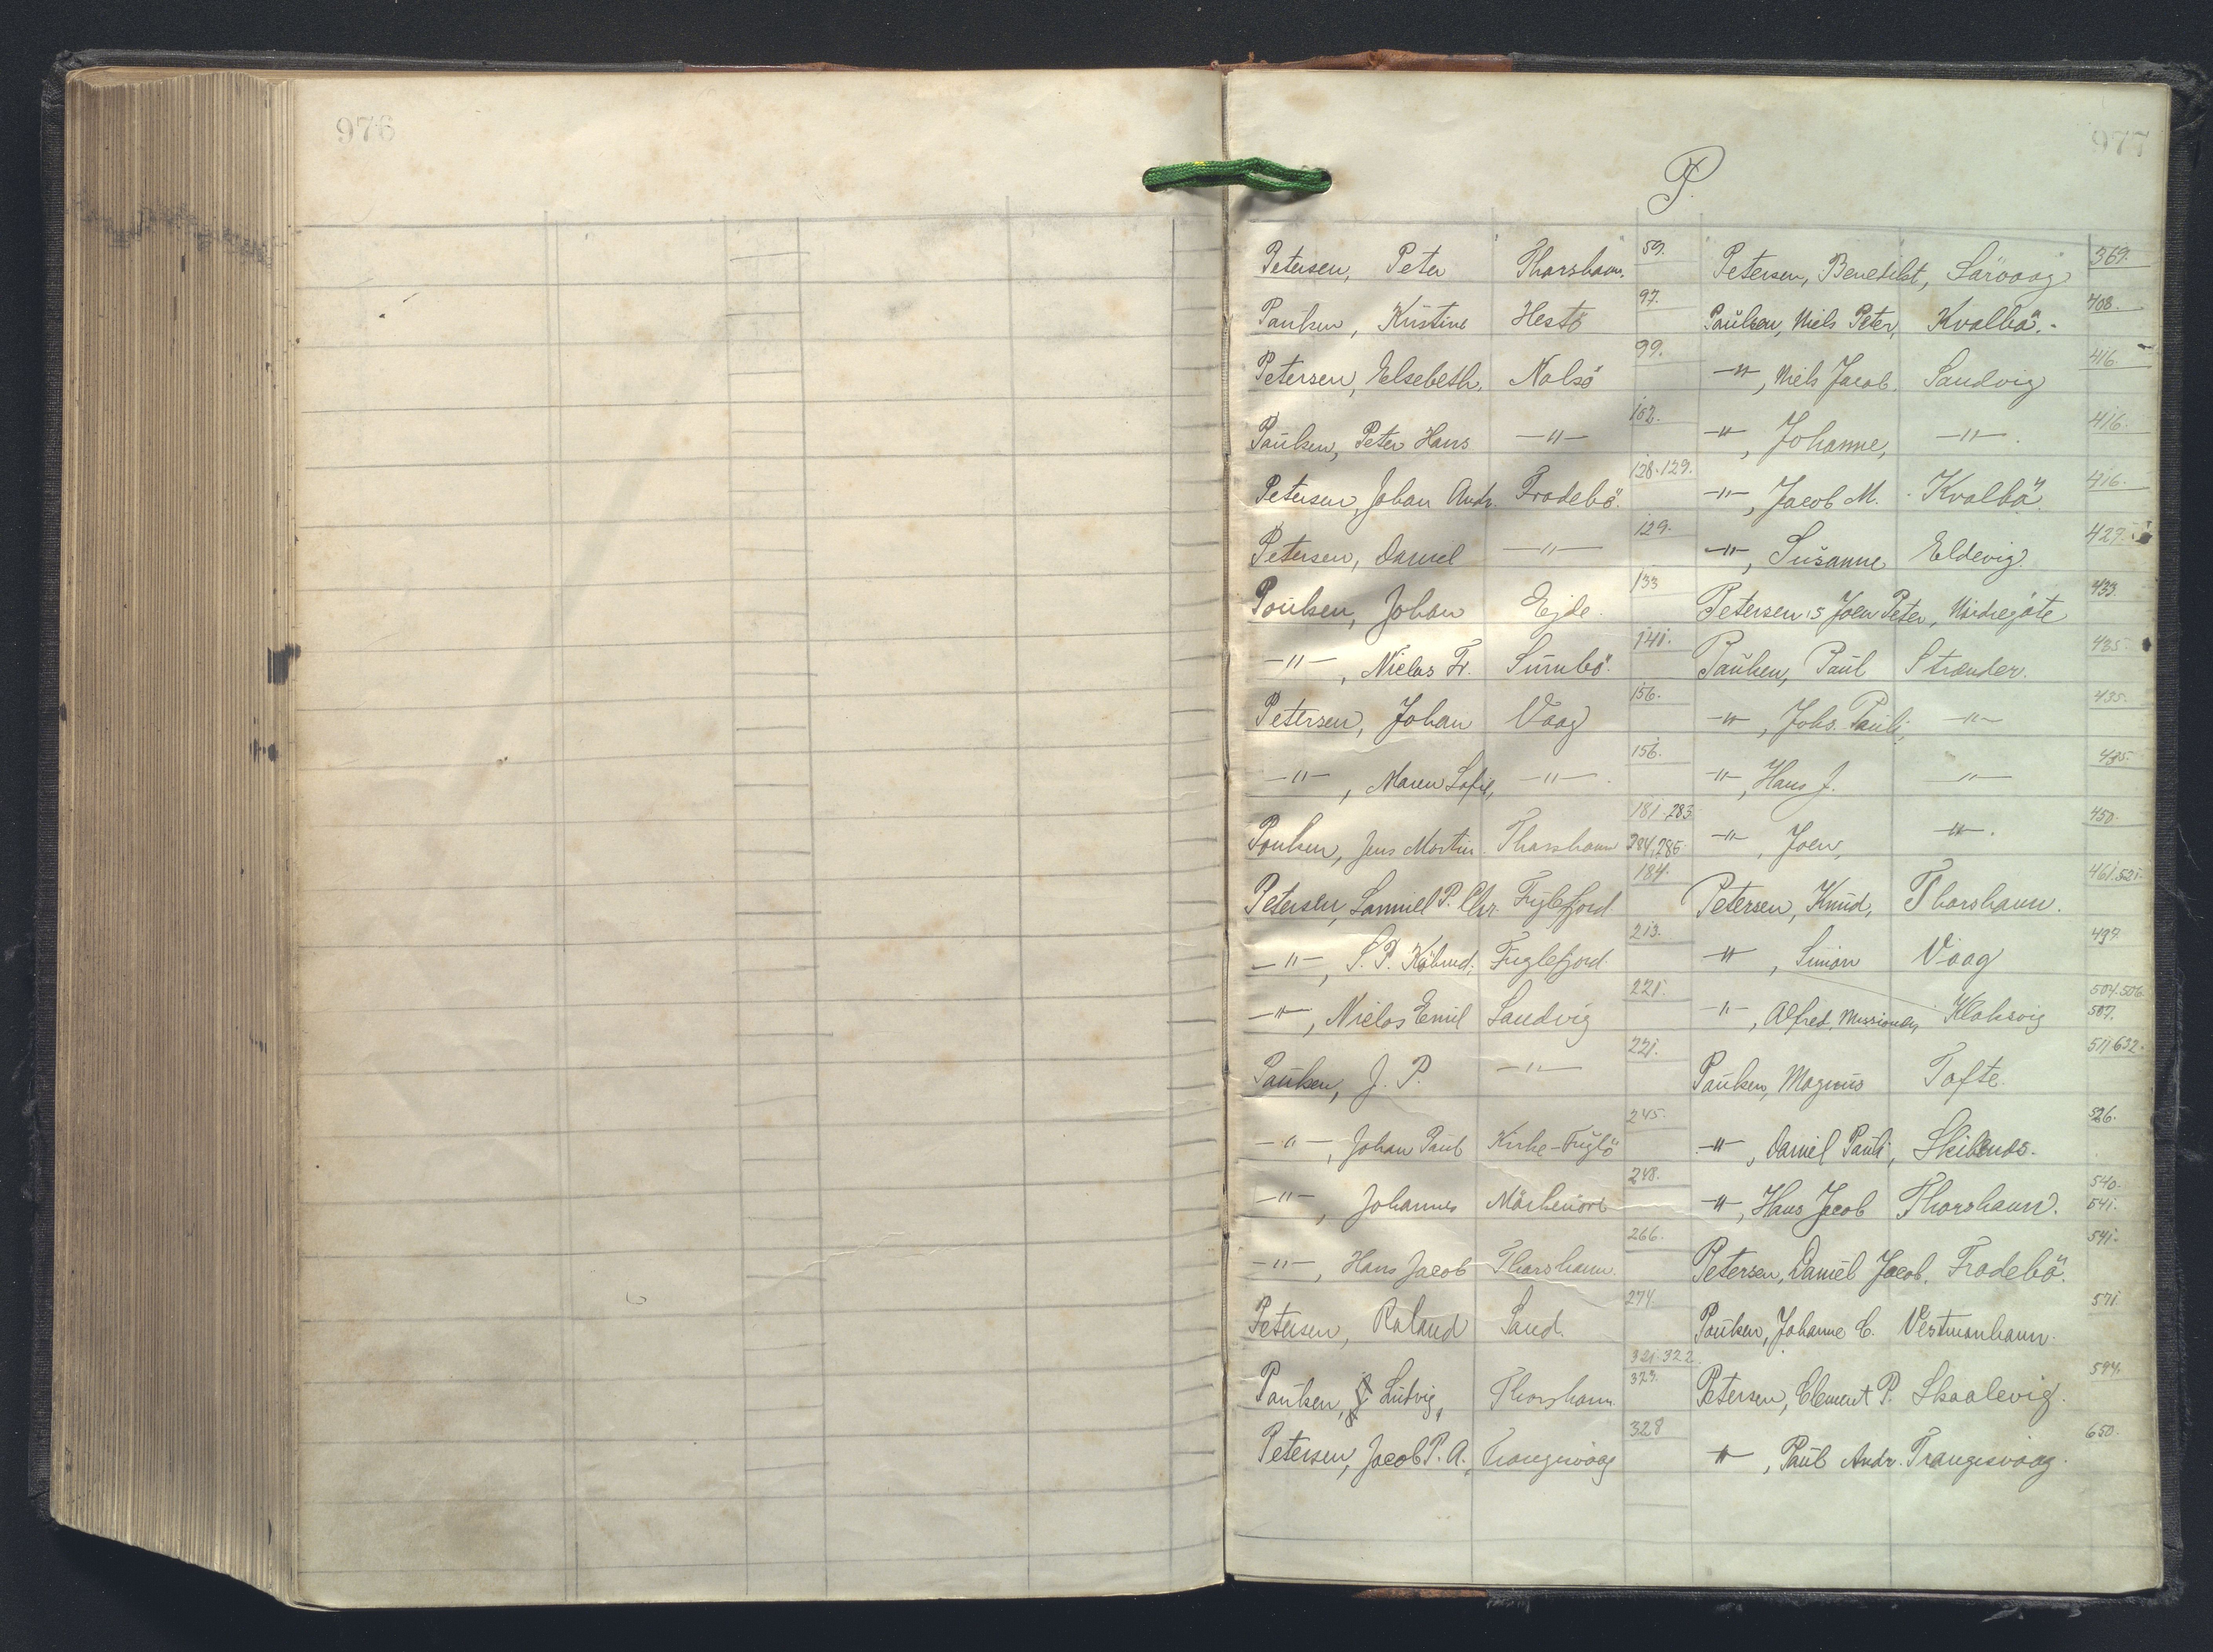 976
977
P.
Petersen, Peter Thorshavn. 59.
Paulsen, Kristine Hestö 97.
Petersen, Elsebeth, Nolsö 99.
Paulsen, Peter Hans —"— 102.
Petersen, Johan Andr. Frodebö. 128.129.
Petersen, Daniel —"— 129.
Poulsen, Johan Ejde. 133
—"—, Niclas Fr. Sumbö. 141.
Petersen, Johan Vaag 156.
—"—, Maren Sofie, —"—. 156.
Poulsen, Jens Martin. Thorshavn 181.283. 284.285.
Petersen, Samuel P. Chr. Fuglefjord 184.
—"—, S. P. Fuglefjord 213.
—"—, Niclas Emil Sandvig 221.
Paulsen, J. P. —"— 221.
—"—, Johan Paul Kirke-Fuglö 245.
—"—, Johannes 248.
—"—, Hans Jacob Thorshavn. 266.
Petersen, Roland Sand. 274.
Paulsen, Ludvig, Thorshavn. 321.322. 323.
Petersen, Jacob P. A., Trangisvaag 328
Petersen, Benedikt, Sörvaag 369.
Paulsen, Niels Peter, Kvalbö. 408.
—"—, Niels Jacob. Sandvig 416.
—"—, Johanne, —"—. 416.
—"—, Jacob M. Kvalbö. 416.
—"—, Susanne Eldevig. 427.
Petersen, Joen Peter, Nördregöte 433.
Paulsen, Paul Strænder. 435.
—"—, Johs. Pauli, —"— 435.
—"—, Hans J. —"— 435.
—"—, Joen, —"—. 450.
Petersen, Knud, Thorshavn. 461.521.
—"—, Simon Vaag 497.
—"—, Alfred, Missionær, Klaksvig 504.506. 507.
Paulsen, Magnus Tofte. 511.632.
—"—, Daniel Pauli, 526.
—"—, Hans Jacob Thorshavn. 540. 541.
Petersen, Daniel Jacob. Frodebö. 541.
Poulsen, Johanne C. Vestmanhavn. 571.
Petersen, Clement P. Skaalevig. 594.
—"—, Paul Andr. Trangisvaag. 650.